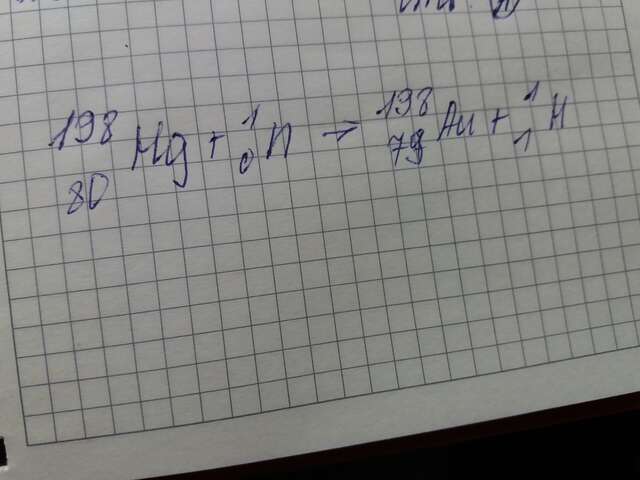 198 1 198 1
Hg + n → Au + H
80 0 79 1